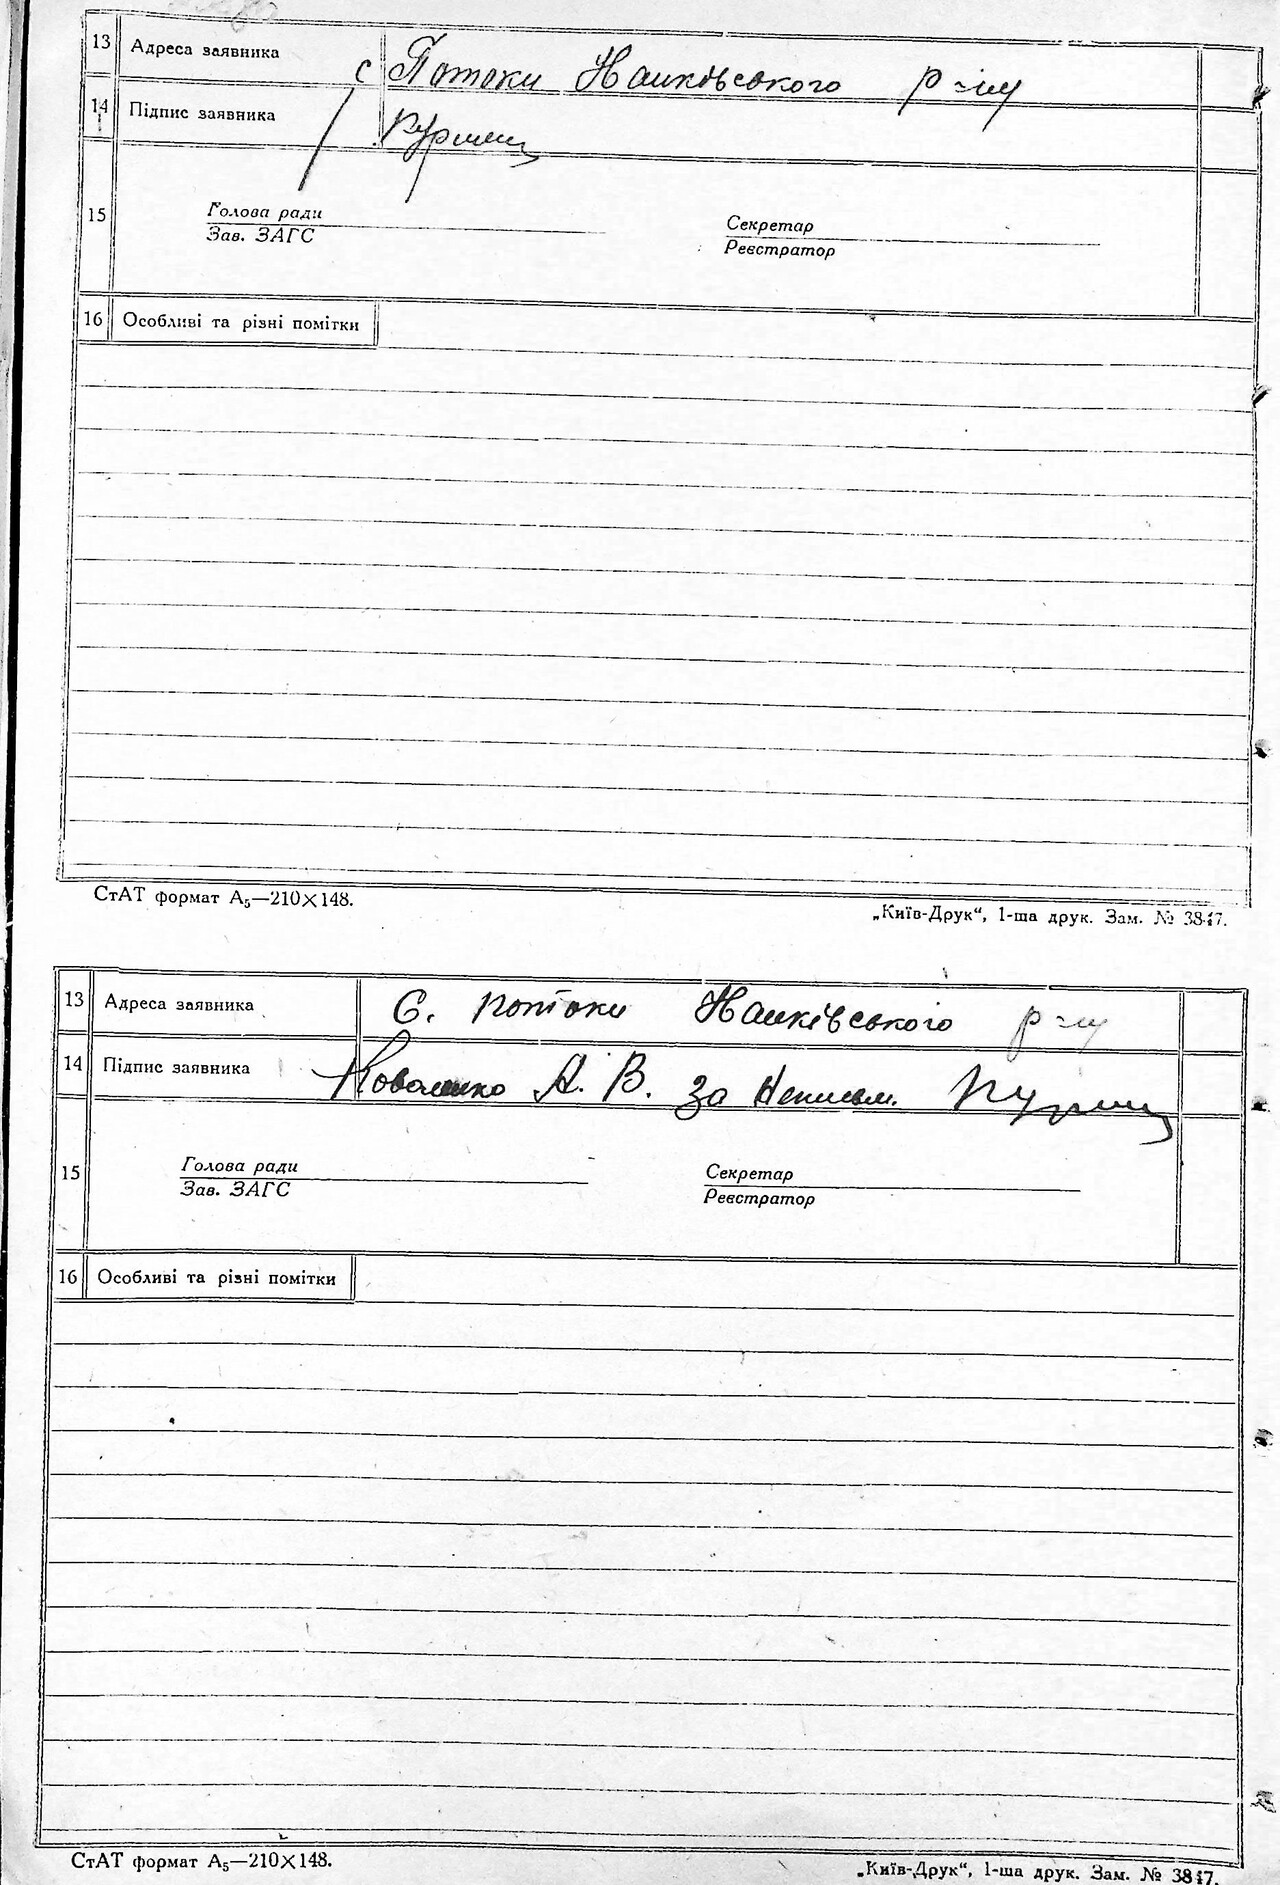 13 Адреса заявника с Потоки Наицівського р-ну
14 Підпис заявника
15 Голова ради Секретар
Зав. ЗАГС Реєстратор
16 Особливі та різні помітки
СтАТ формат А₅—210×148.
„Київ-Друк“, 1-ша друк. Зам. № 3847.
13 Адреса заявника С. Потоки р-ну
14 Підпис заявника Коваленко А. В. за Неписьм.
15 Голова ради Секретар
Зав. ЗАГС Реєстратор
16 Особливі та різні помітки
СтАТ формат А₅—210×148.
„Київ-Друк“, 1-ша друк. Зам. № 3847.